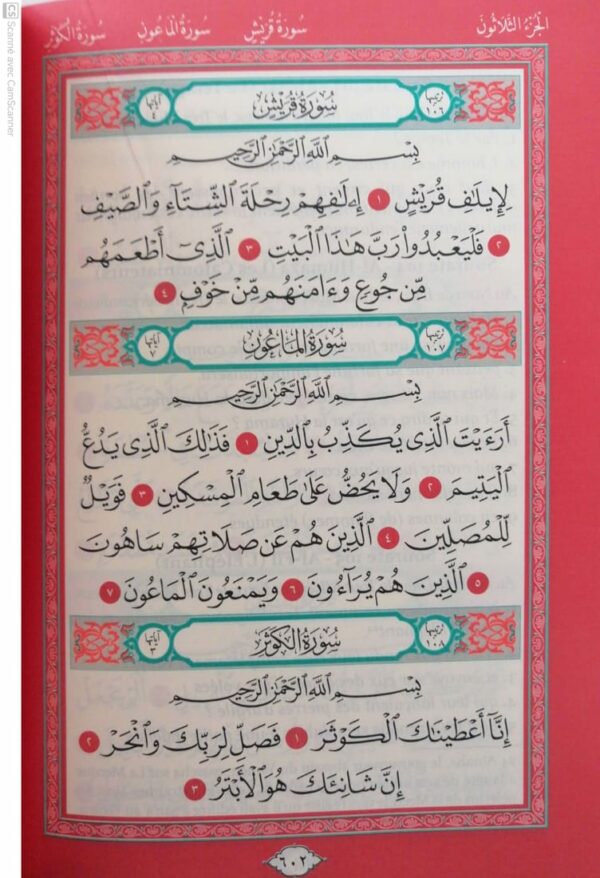 CS Scanné avec CamScanner
الجزء الثلاثون سورة قريش سورة الماعون سورة الكوثر
ترتيبها ١٠٦ سورة قريش آياتها ٤
بِسْمِ ٱللَّهِ ٱلرَّحْمَٰنِ ٱلرَّحِيمِ
لِإِيلَٰفِ قُرَيْشٍ ١ إِۦلَٰفِهِمْ رِحْلَةَ ٱلشِّتَآءِ وَٱلصَّيْفِ
٢ فَلْيَعْبُدُوا۟ رَبَّ هَٰذَا ٱلْبَيْتِ ٣ ٱلَّذِىٓ أَطْعَمَهُم
مِّن جُوعٍ وَءَامَنَهُم مِّنْ خَوْفٍۭ ٤
ترتيبها ١٠٧ سورة الماعون آياتها ٧
بِسْمِ ٱللَّهِ ٱلرَّحْمَٰنِ ٱلرَّحِيمِ
أَرَءَيْتَ ٱلَّذِى يُكَذِّبُ بِٱلدِّينِ ١ فَذَٰلِكَ ٱلَّذِى يَدُعُّ
ٱلْيَتِيمَ ٢ وَلَا يَحُضُّ عَلَىٰ طَعَامِ ٱلْمِسْكِينِ ٣ فَوَيْلٌ
لِّلْمُصَلِّينَ ٤ ٱلَّذِينَ هُمْ عَن صَلَاتِهِمْ سَاهُونَ
٥ ٱلَّذِينَ هُمْ يُرَآءُونَ ٦ وَيَمْنَعُونَ ٱلْمَاعُونَ ٧
ترتيبها ١٠٨ سورة الكوثر آياتها ٣
بِسْمِ ٱللَّهِ ٱلرَّحْمَٰنِ ٱلرَّحِيمِ
إِنَّآ أَعْطَيْنَٰكَ ٱلْكَوْثَرَ ١ فَصَلِّ لِرَبِّكَ وَٱنْحَرْ ٢
إِنَّ شَانِئَكَ هُوَ ٱلْأَبْتَرُ ٣
٦٠٢